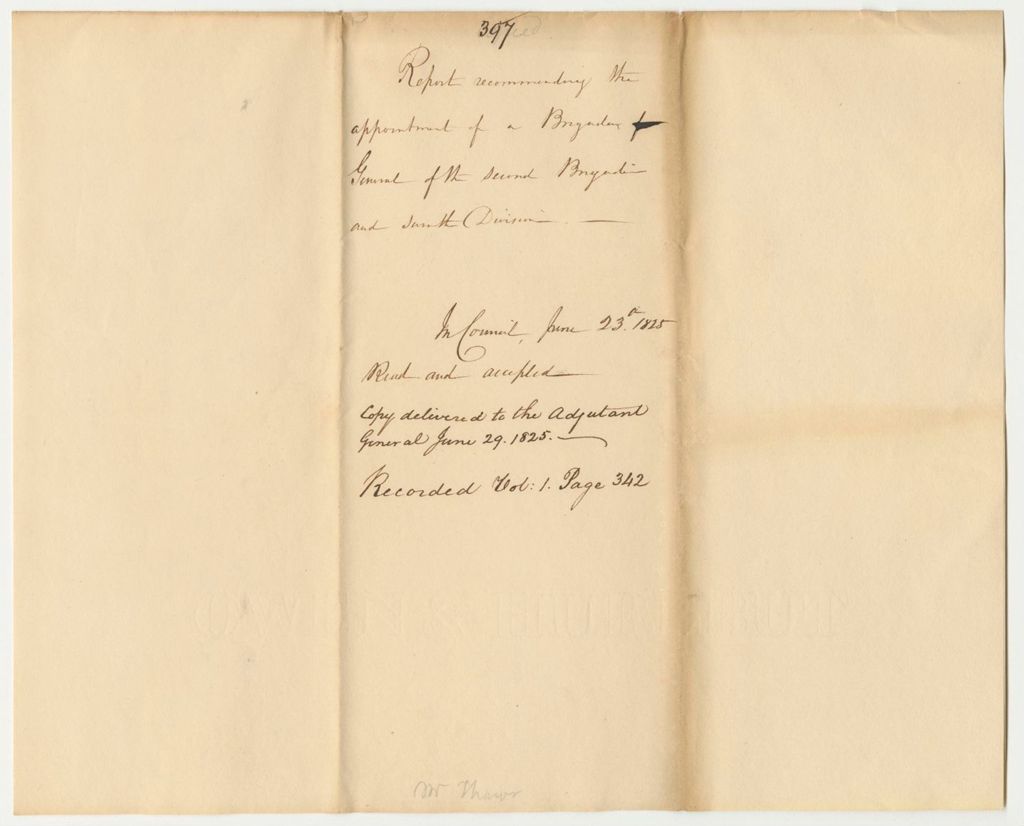 397
Report recommending the
appointment of a Brigadier
General of the second Brigade
and Division.
In Council, June 23d. 1825
Read and accepted
Copy delivered to the Adjutant
General June 29. 1825.
Recorded Vol: 1. Page 342
Mr